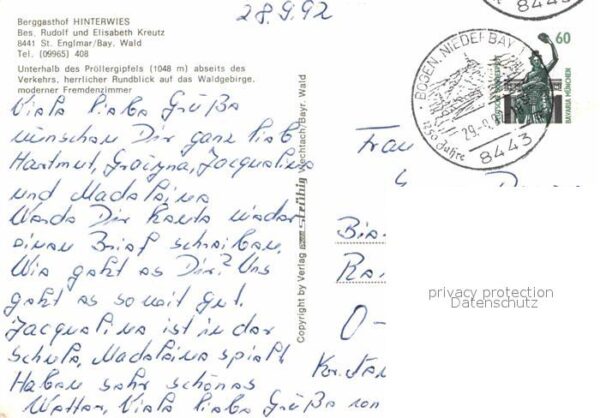 28.9.92
Berggasthof HINTERWIES
Bes. Rudolf und Elisabeth Kreutz
8441 St. Englmar/Bay. Wald
Tel. (09965) 408
Unterhalb des Pröllergipfels (1048 m) abseits des
Verkehrs, herrlicher Rundblick auf das Waldgebirge.
moderner Fremdenzimmer
Viele liebe Grüße
wünschen Dir ganz lieb
Hartmut, Grazyna, Jacqueline
und Madeleine
Werde Dir heute wieder
einen Brief schreiben.
Wie geht es Dir? Uns
geht es soweit gut.
Jacqueline ist in der
Schule, Madeleine spielt
Haben sehr schönes
Wetter, Viele liebe Grüße von
Copyright by Verlag Ströhlig Viechtach/Bayr. Wald
8443
BOGEN, NIEDERBAY 1
1250 Jahre
29.-9.9
8443
60
DEUTSCHE BUNDESPOST
BAVARIA MÜNCHEN
Frau
Bis.
Ra.
O-
privacy protection
Datenschutz